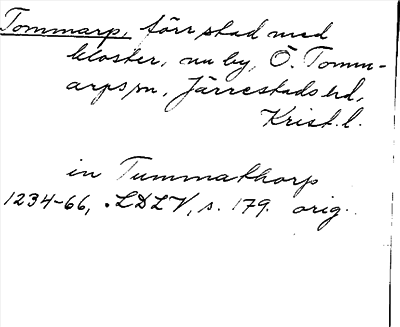 Tommarp, förr stad med
kloster, nu by, Ö. Tomm-
arps sn, Järrestads hd,
Krist. l.
in Tummathorp
1234-66, LDLV, s. 179. orig.